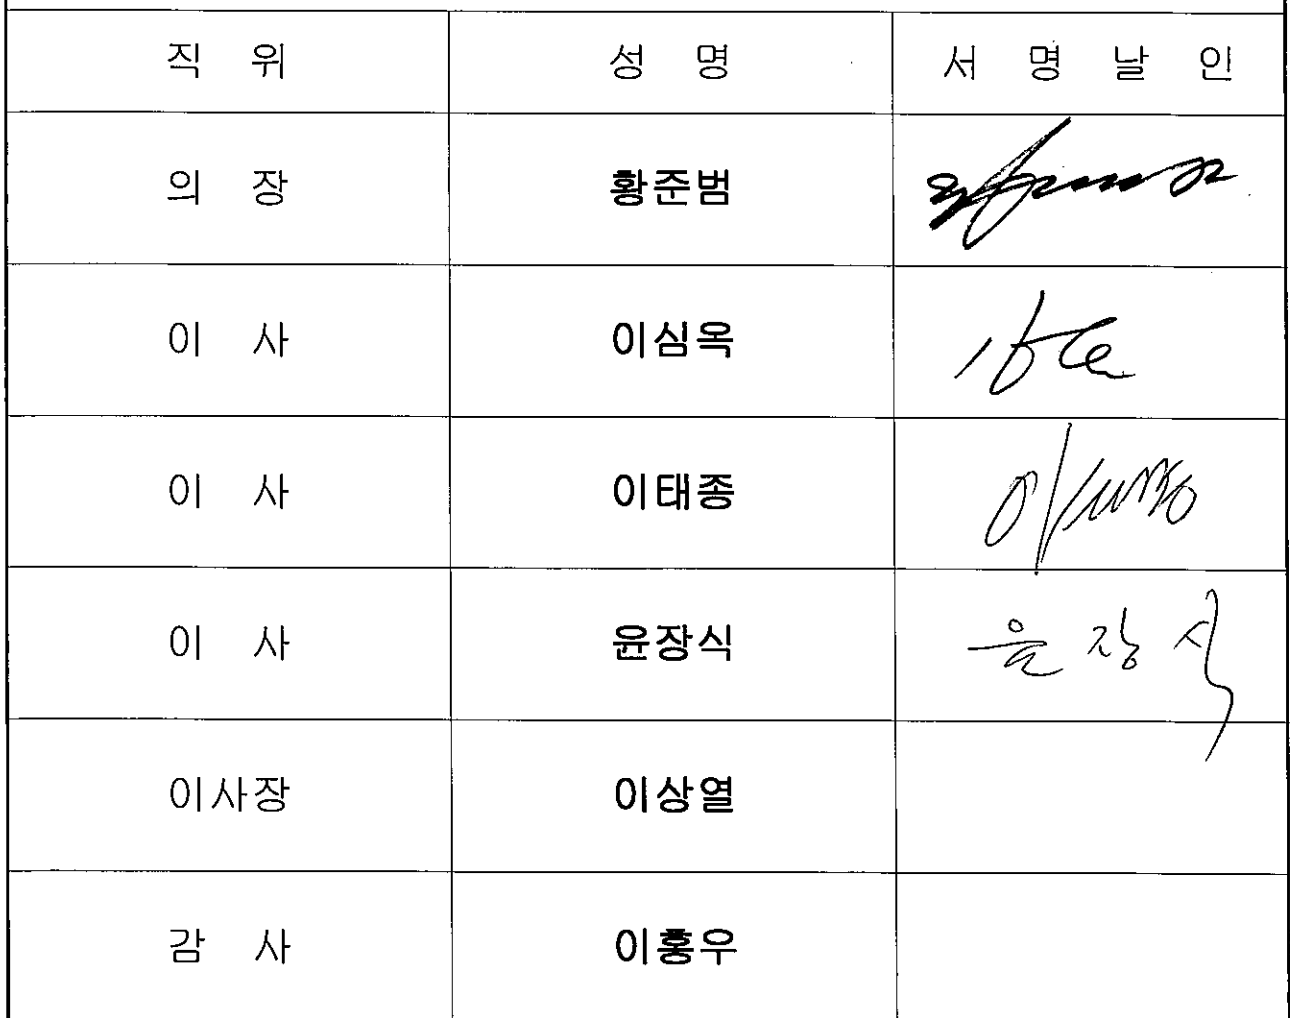 직 위 성 명 서 명 날 인
의 장 황준범
이 사 이심옥
이 사 이태종
이 사 윤장식 윤장식
이사장 이상열
감 사 이홍우